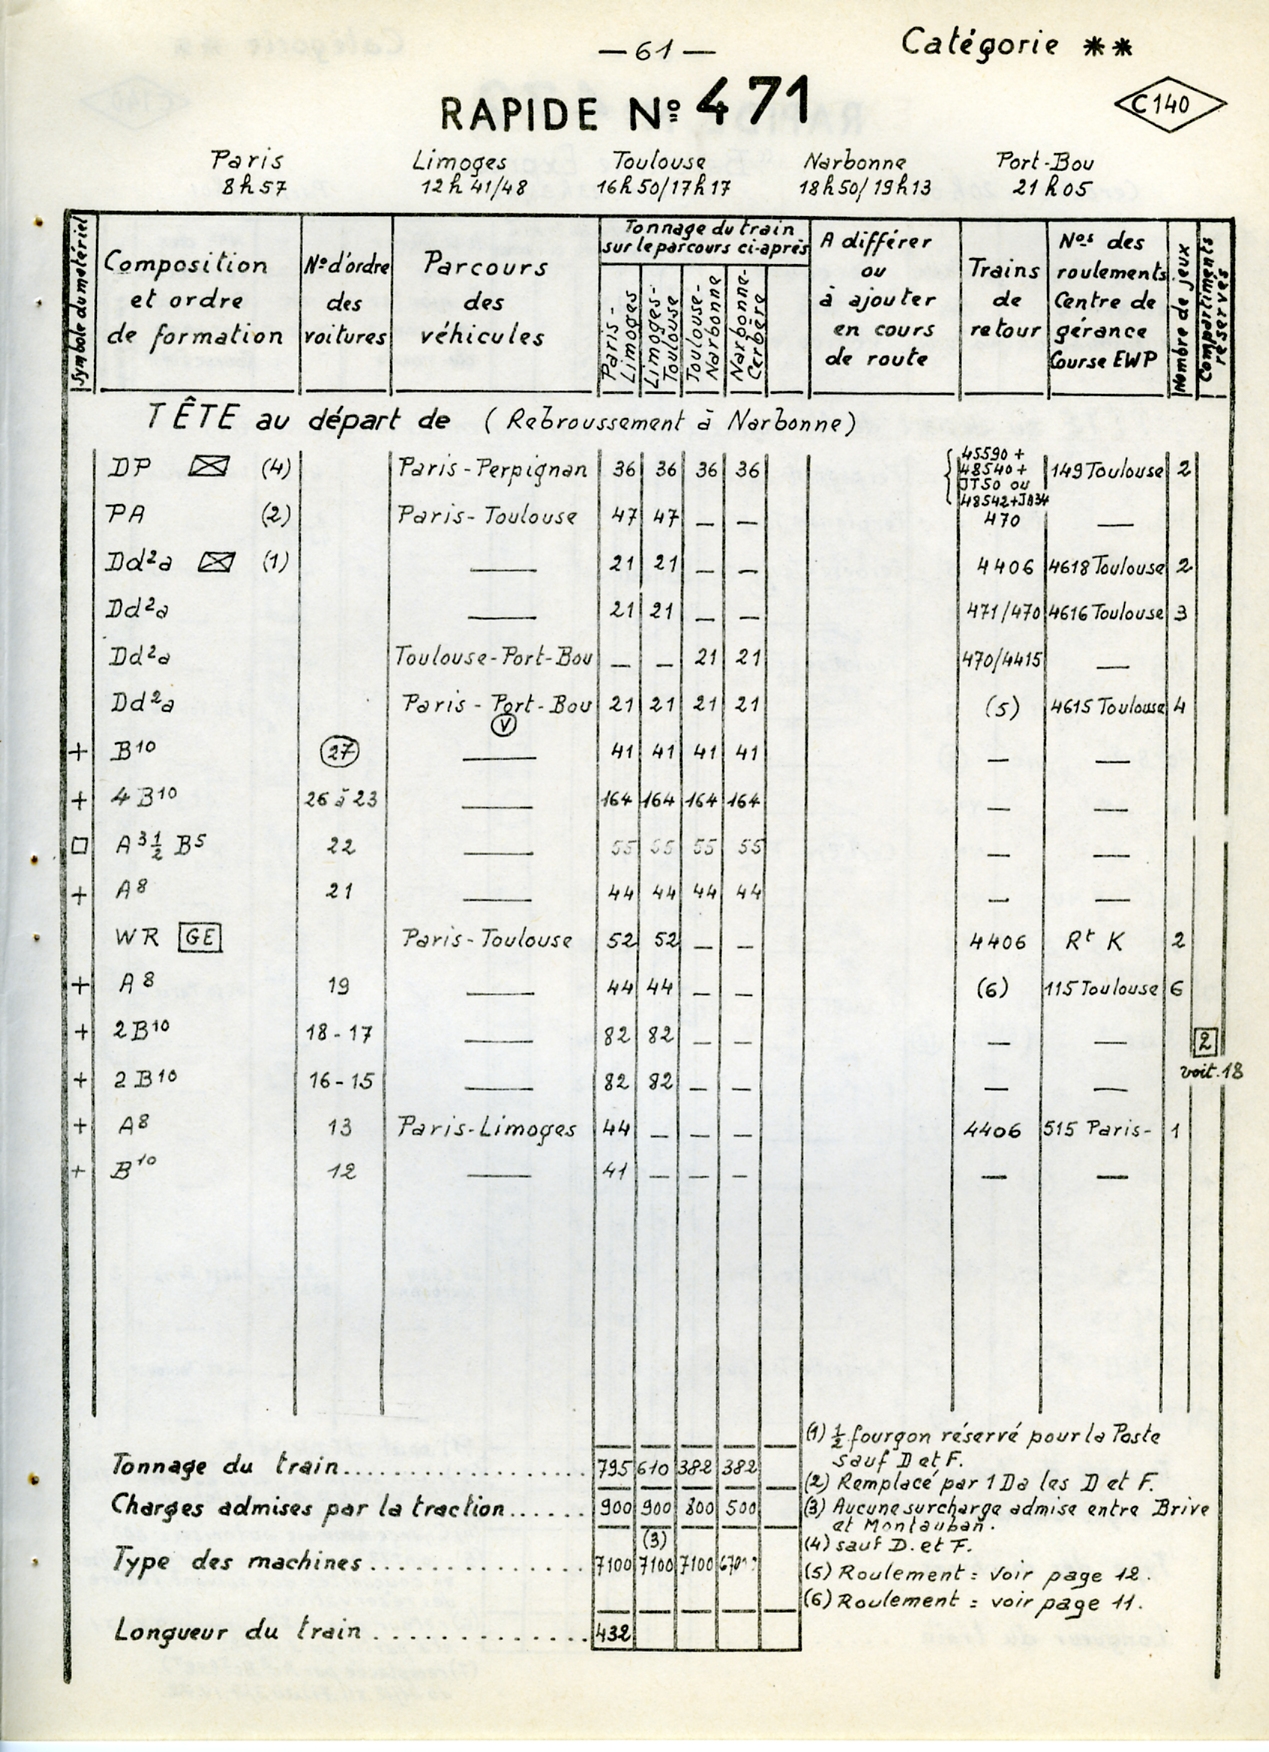 — 61 —
Catégorie **
RAPIDE Nº 471
C140
Paris Limoges Toulouse Narbonne Port-Bou
8h57 12h41/48 16h50/17h17 18h50/19h13 21h05
Symbole du matériel
Composition et ordre de formation
Nº d'ordre des voitures
Parcours des véhicules
Tonnage du train sur le parcours ci-après
Paris-Limoges
Limoges-Toulouse
Toulouse-Narbonne
Narbonne-Cerbère
A différer ou à ajouter en cours de route
Trains de retour
Nos des roulements Centre de gérance Course EWP
Nombre de jeux
Compartiments réservés
TÊTE au départ de (Rebroussement à Narbonne)
DP (4) Paris-Perpignan 36 36 36 36 45590+ 48540+ JT50 ou 48542+JB34 149 Toulouse 2
PA (2) Paris-Toulouse 47 47 — — 470 —
Dd²a (1) — 21 21 — — 4406 4618 Toulouse 2
Dd²a — 21 21 — — 471/470 4616 Toulouse 3
Dd²a Toulouse-Port-Bou — — 21 21 470/4415 —
Dd²a Paris - Port-Bou 21 21 21 21 (5) 4615 Toulouse 4
V
+ B10 27 — 41 41 41 41 — —
+ 4 B10 26 à 23 — 164 164 164 164 — —
□ A3½ B5 22 — 55 55 55 55 — —
+ A8 21 — 44 44 44 44 — —
WR GE Paris-Toulouse 52 52 — — 4406 Rt K 2
+ A8 19 — 44 44 — — (6) 115 Toulouse 6
+ 2 B10 18-17 — 82 82 — — — — 2
voit. 18
+ 2 B10 16-15 — 82 82 — — — —
+ A8 13 Paris-Limoges 44 — — — 4406 515 Paris- 1
+ B10 12 — 41 — — — — —
Tonnage du train.................. 795 610 382 382
Charges admises par la traction...... 900 900 800 500
(3)
Type des machines............... 7100 7100 7100
Longueur du train .............. 432
(1) ½ fourgon réservé pour la Poste
sauf D et F.
(2) Remplacé par 1 Da les D et F.
(3) Aucune surcharge admise entre Brive
et Montauban.
(4) sauf D. et F.
(5) Roulement : voir page 12.
(6) Roulement : voir page 11.